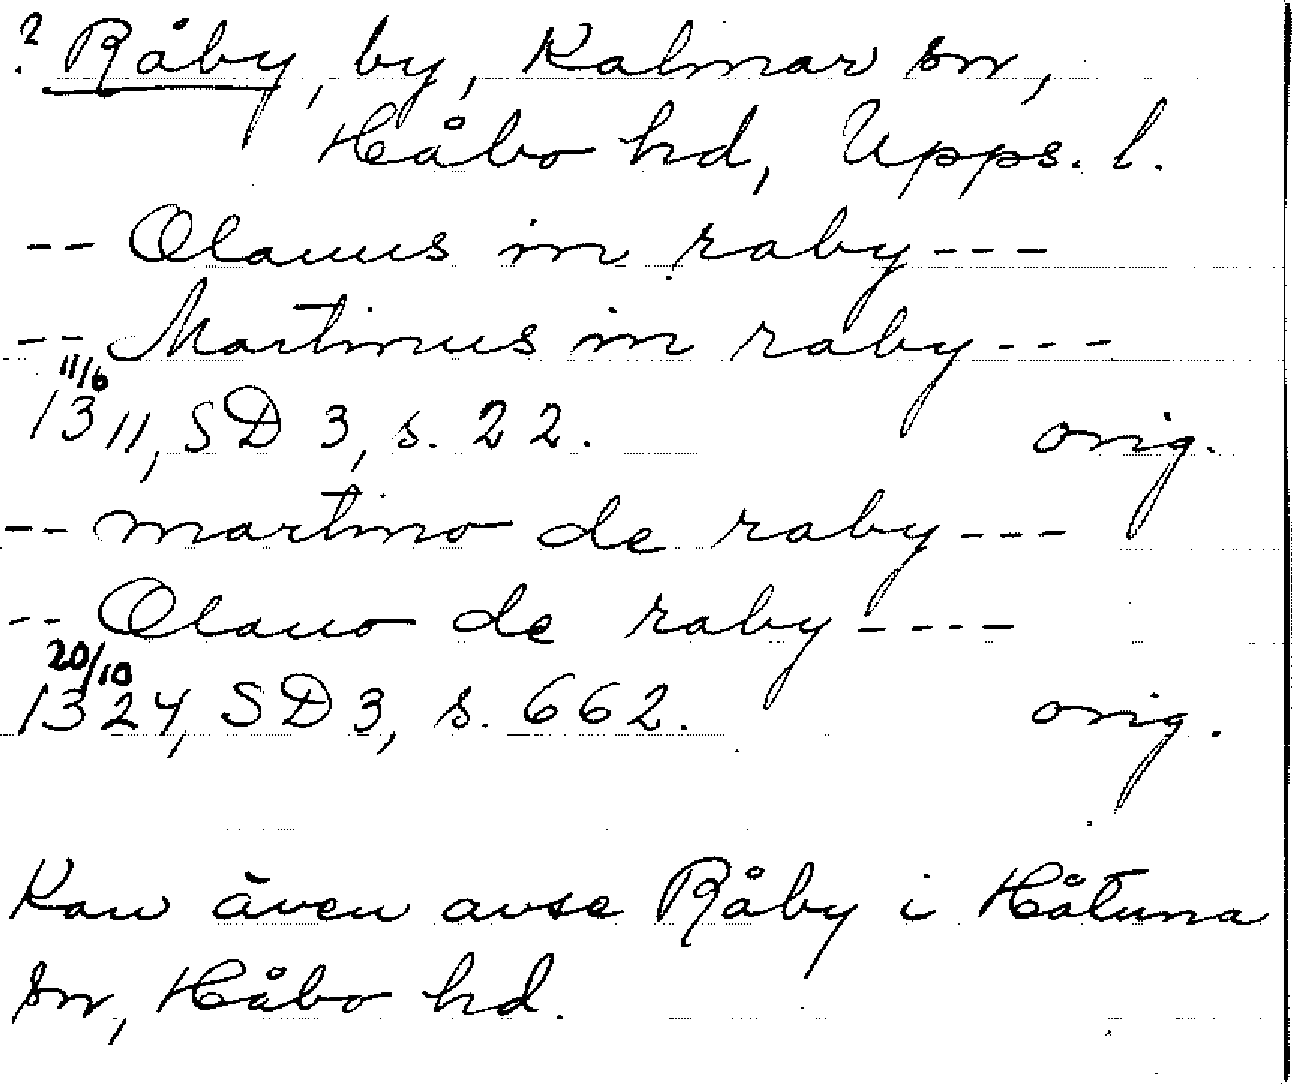 ? Råby, by, Kalmar sn,
Håbo hd, Upps. l.
-- Olauus in raby ---
-- Martinus in raby ---
11/6
1311, SD 3, s. 22. orig.
-- martino de raby ---
-- Olauo de raby ----
20/10
1324, SD 3, s. 662. orig.
Kan även avse Råby i Håtuna
sn, Håbo hd.